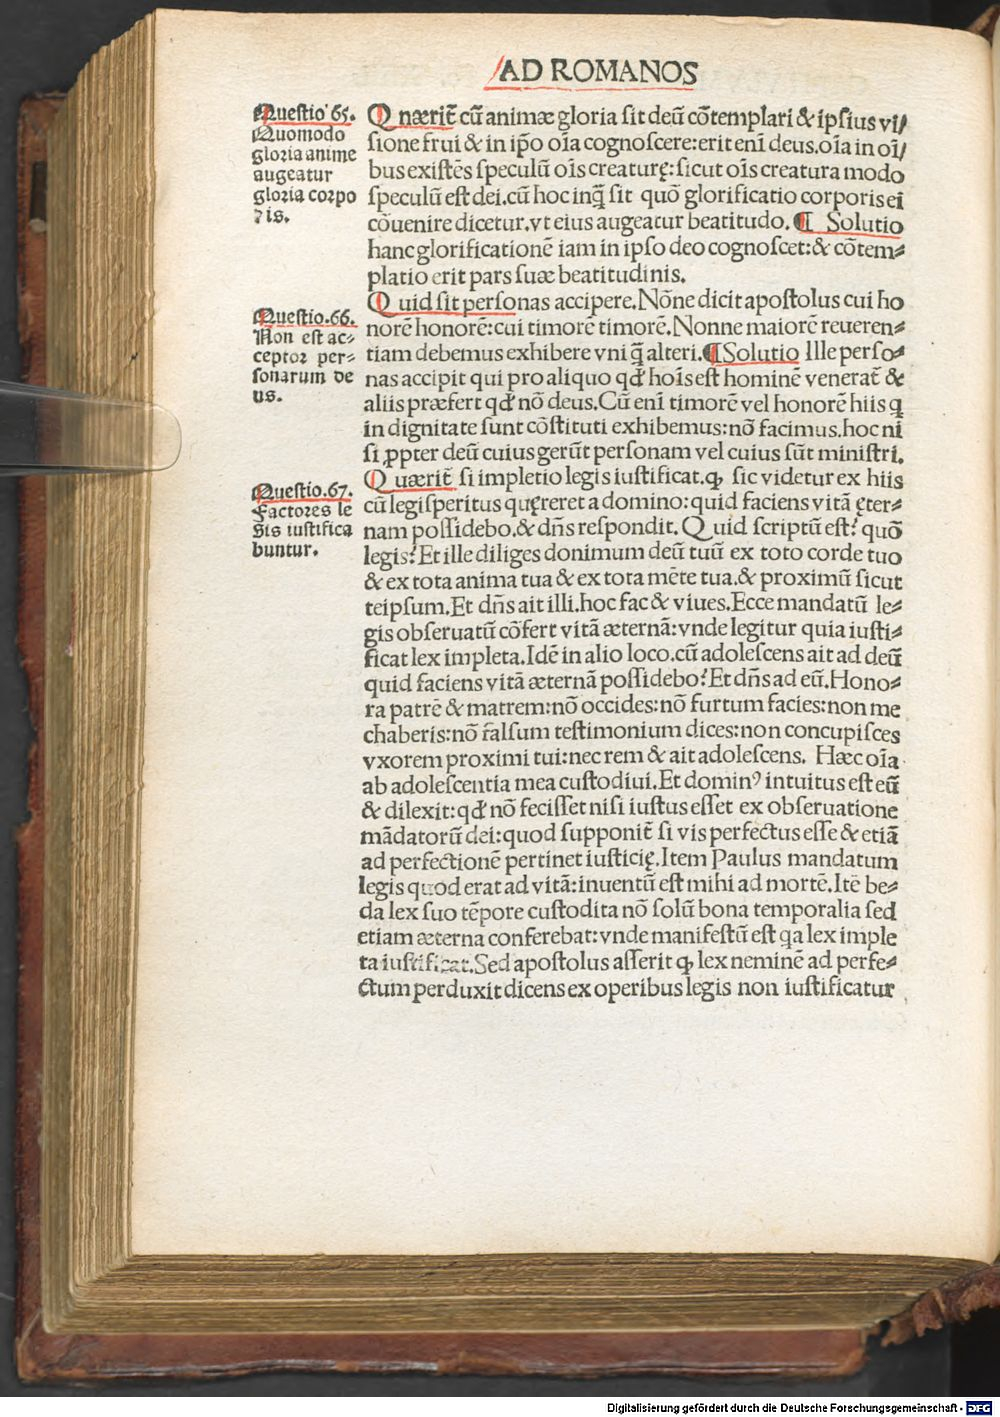 AD ROMANOS
Questio 65.
Quomodo
gloria anime
augeatur
gloria corpo
ris.
Q næriť cū animæ gloria sit deū cōtemplari & ipsius vi/
sione frui & in ip̄o oīa cognoscere: erit enī deus. oīa in oī/
bus existēs speculū oīs creaturę: sicut oīs creatura modo
speculū est dei. cū hoc inq̄ sit quō glorificatio corporis ei
cōuenire dicetur. vt eius augeatur beatitudo. ¶ Solutio
hanc glorificationē iam in ipso deo cognoscet: & cōtem⸗
platio erit pars suæ beatitudinis.
Questio.66.
Non est ac⸗
ceptor per⸗
sonarum de
us.
Q uid sit personas accipere. Nōne dicit apostolus cui ho
norē honorē: cui timorē timorē. Nonne maiorē reueren⸗
tiam debemus exhibere vni q̄ alteri. ¶ Solutio Ille perso⸗
nas accipit qui pro aliquo qđ hoīs est hominē venerať &
aliis præfert qđ nō deus. Cū enī timorē vel honorē hiis q
in dignitate sunt cōstituti exhibemus: nō facimus. hoc ni
si ꝓpter deū cuius gerūt personam vel cuius sūt ministri.
Questio.67.
Factores le
gis iustifica
buntur.
Q uæriť si impletio legis iustificat. ꝙ sic videtur ex hiis
cū legisperitus quęreret a domino: quid faciens vitā ęter⸗
nam possidebo. & dn̄s respondit. Quid scriptū est? quō
legis? Et ille diliges donimum deū tuū ex toto corde tuo
& ex tota anima tua & ex tota mēte tua. & proximū sicut
teipsum. Et dn̄s ait illi. hoc fac & viues. Ecce mandatū le⸗
gis obseruatū cōfert vitā æternā: vnde legitur quia iusti⸗
ficat lex impleta. Idē in alio loco. cū adolescens ait ad deū
quid faciens vitā æternā possidebo? Et dn̄s ad eū. Hono⸗
ra patrē & matrem: nō occides: nō furtum facies: non me
chaberis: nō falsum testimonium dices: non concupisces
vxorem proximi tui: nec rem & ait adolescens. Hæc oīa
ab adolescentia mea custodiui. Et dominꝰ intuitus est eū
& dilexit: qđ nō fecisset nisi iustus esset ex obseruatione
mādatorū dei: quod supponiť si vis perfectus esse & etiā
ad perfectionē pertinet iusticię. Item Paulus mandatum
legis quod erat ad vitā: inuentū est mihi ad mortē. Itē be⸗
da lex suo tēpore custodita nō solū bona temporalia sed
etiam æterna conferebat: vnde manifestū est qa lex imple
ta iustificat. Sed apostolus asserit ꝙ lex neminē ad perfe⸗
ctum perduxit dicens ex operibus legis non iustificatur
Digitalisierung gefördert durch die Deutsche Forschungsgemeinschaft - DFG